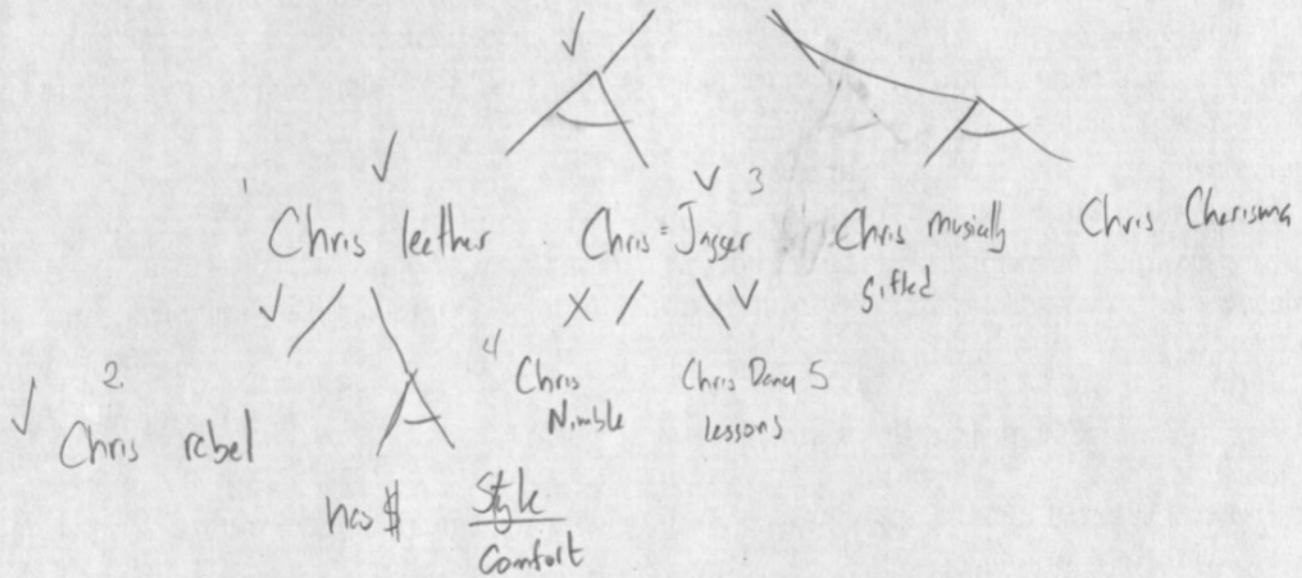 1
3
Chris leether
Chris = Jagger
Chris musically
gifted
Chris Cherisma
2.
4
Chris
Nimble
Chris Dance 5
lessons
Chris rebel
has $
Style
Comfort